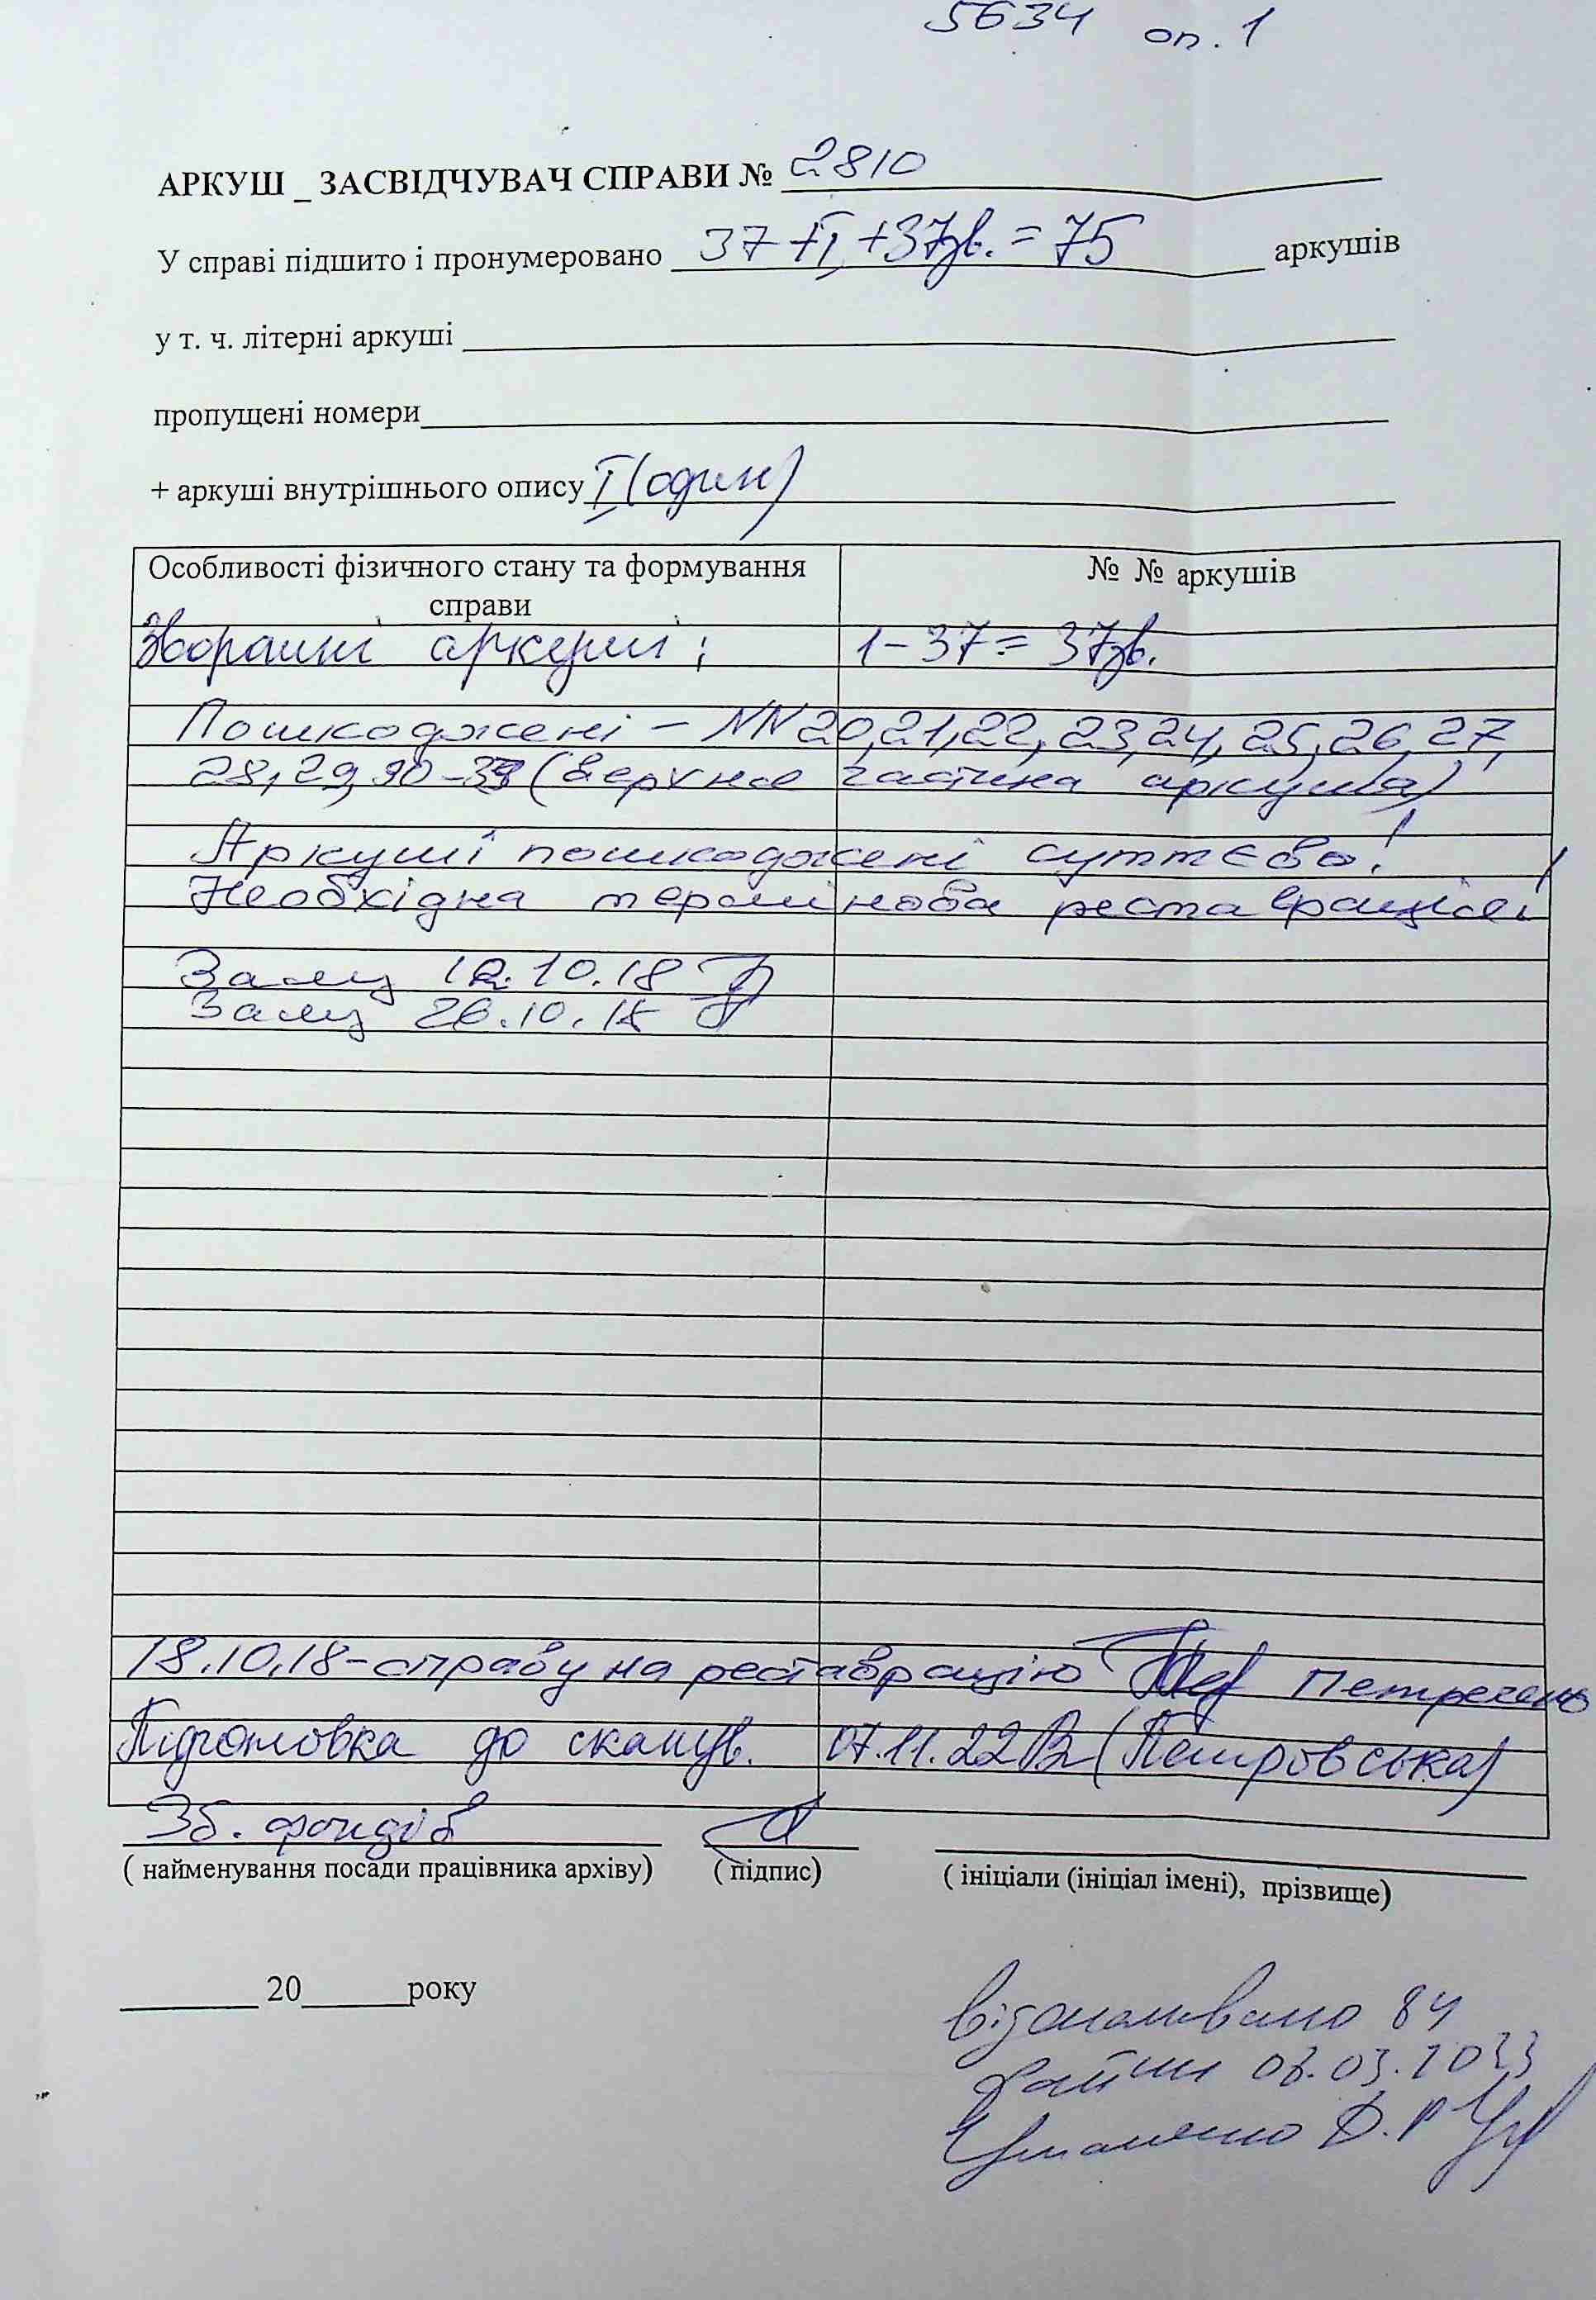 5634 оп. 1
АРКУШ _ ЗАСВІДЧУВАЧ СПРАВИ № 2810
У справі підшито і пронумеровано 37+I+37зв.=75 аркушів
у т. ч. літерні аркуші
пропущені номери
+ аркуші внутрішнього опису I (один)
Особливості фізичного стану та формування справи № № аркушів
Зворотні аркуші: 1-37=37зв.
Пошкоджені - NN 20,21,22,23,24,25,26,27,
28,29,30- (верхня частина аркуша)
Аркуші пошкоджені суттєво!
Необхідна термінова реставрація!
12.10.18
26.10.18
18.10.18-справу на реставрацію
Підготовка до сканув. 07.11.22 (Петровська)
Зб. фондів
( найменування посади працівника архіву) ( підпис) ( ініціали (ініціал імені), прізвище)
20 року
відскановано 84
файли 03.2023